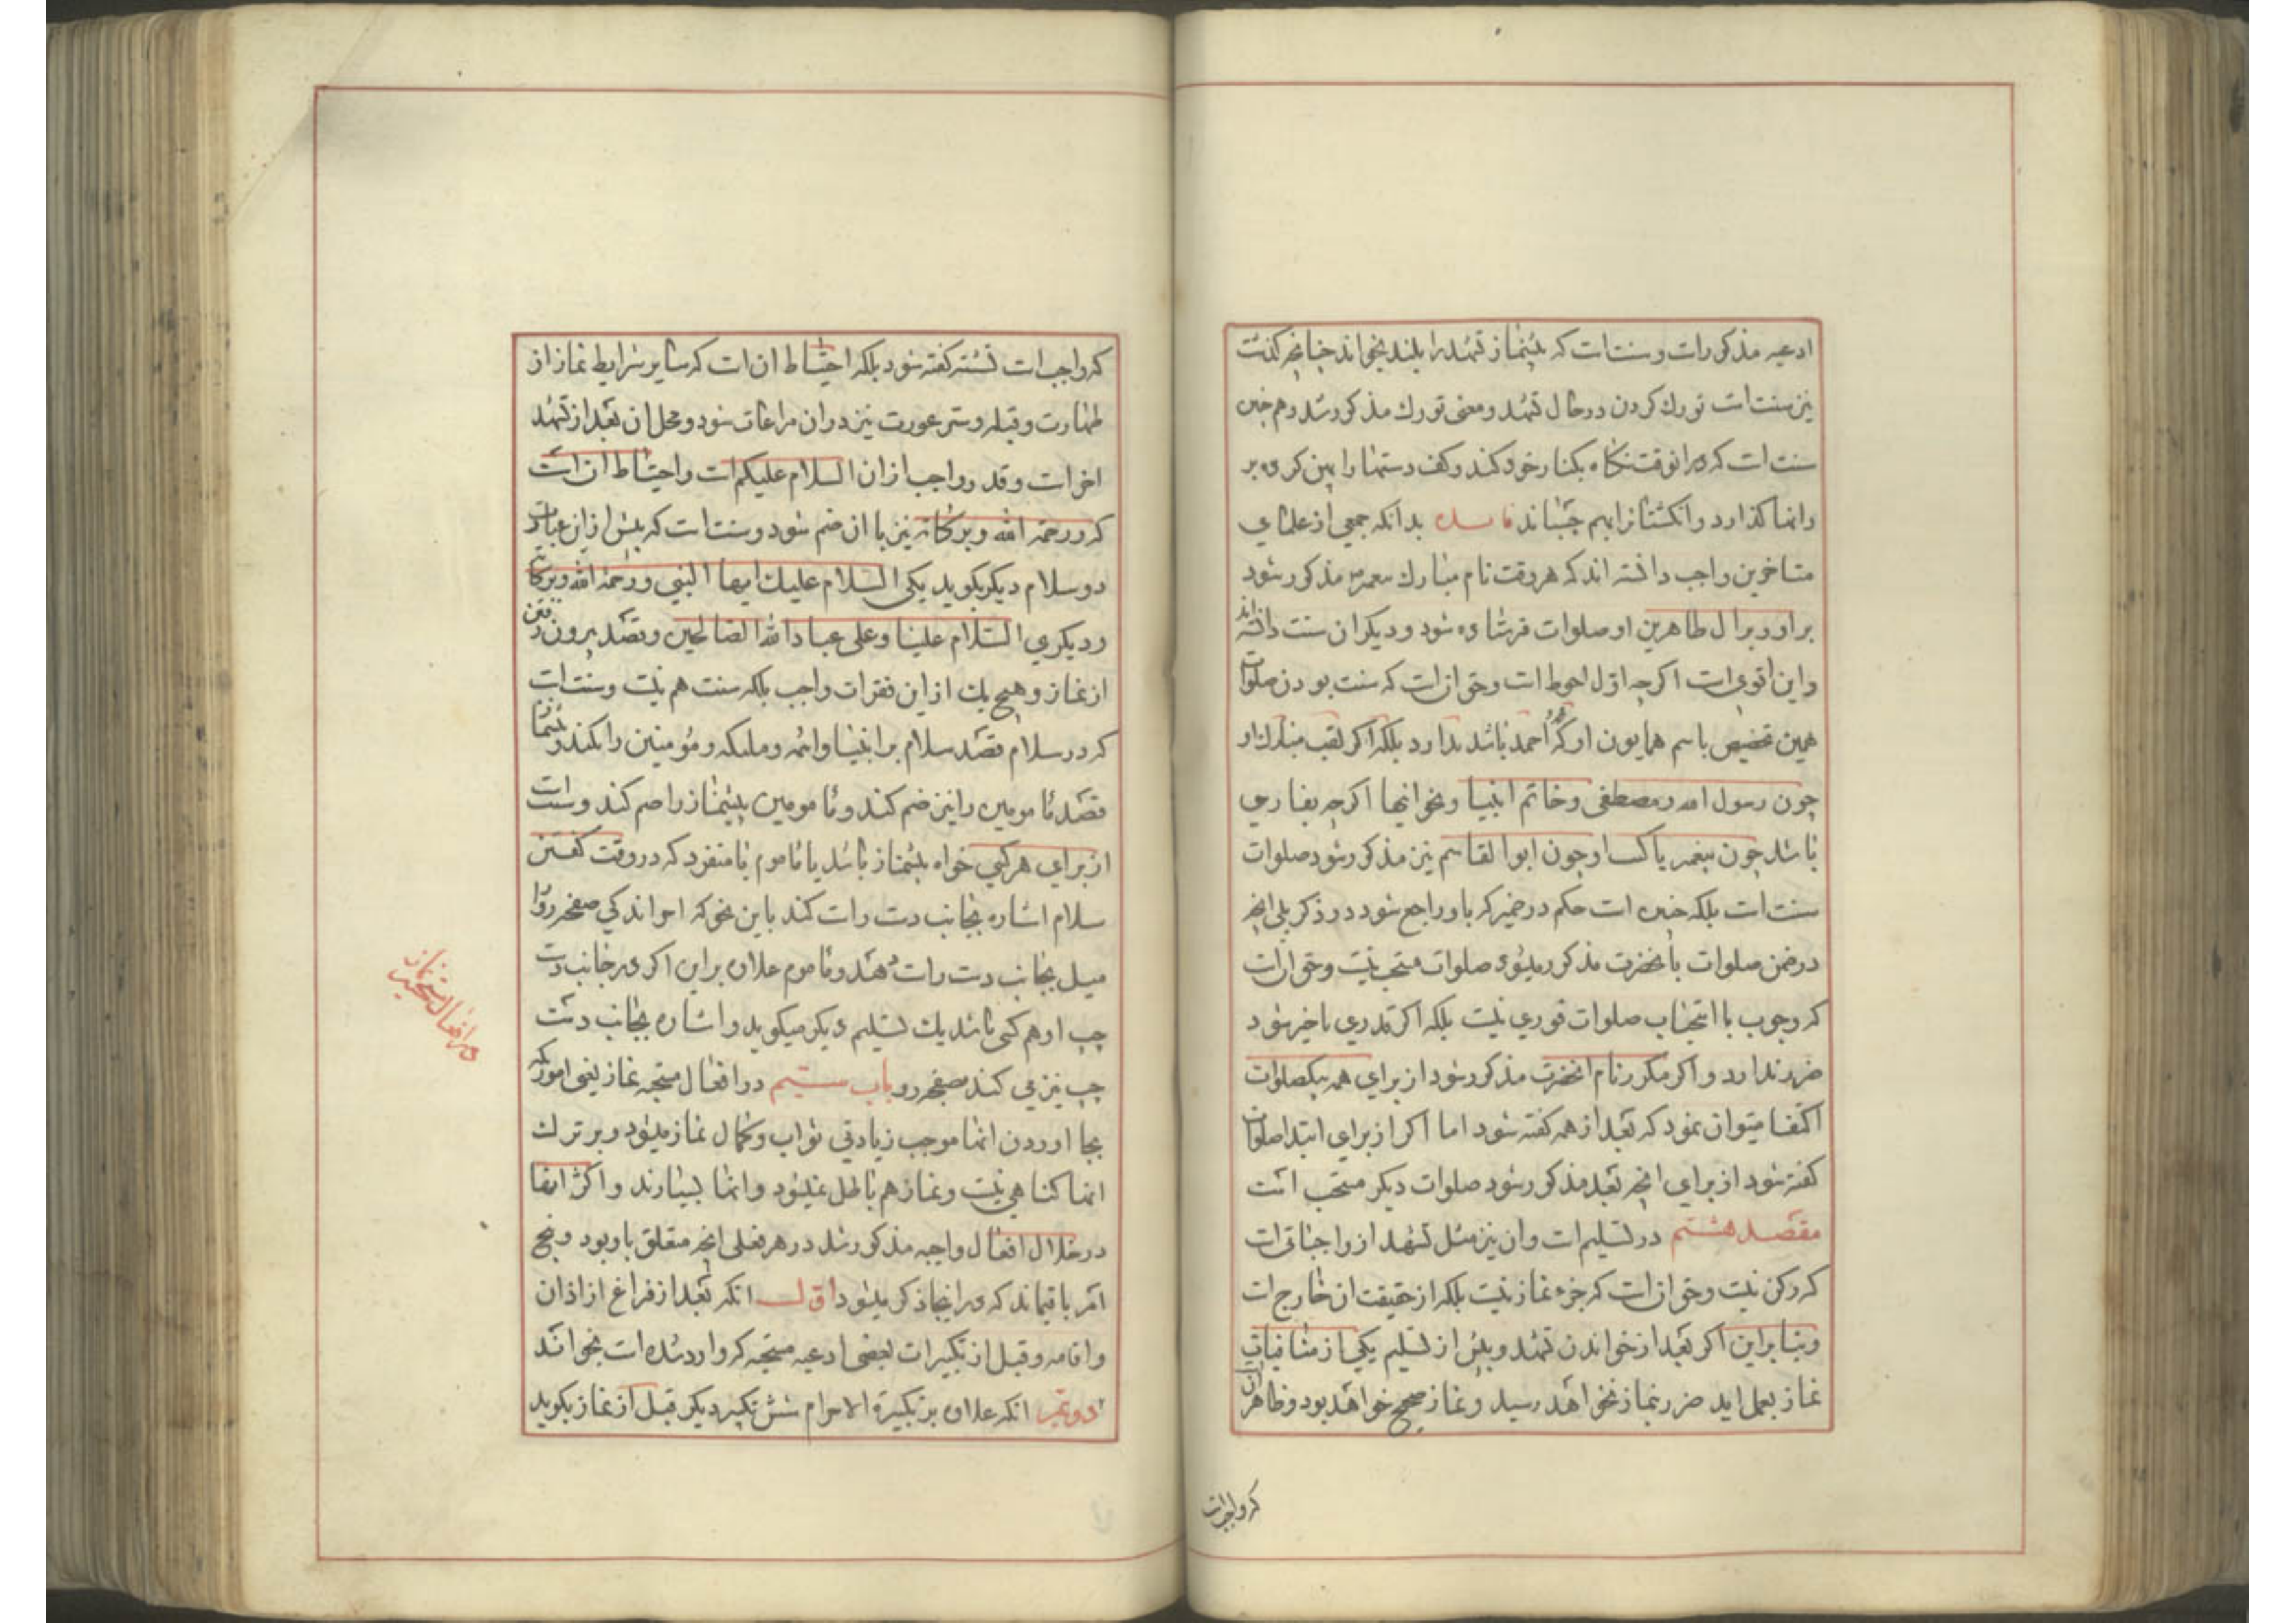 ادعیه مذکورات و سنت است که پیشنماز تشهد را بلند بخواند چنانچه گذشت
نیز سنت است تورك کردن در حال تشهد و معنی تورك مذکور شد و هم چنین
سنت است که در انوقت نکاه بکنار خود کند و کف دستها را پهن کرده بر
رانها کذارد و انکشتانرا بهم چسباند فایده بدانکه جمعی از علمای
متاخرین واجب دانسته اند که هر وقت نام مبارك پیغمبر مذکور شود
بر او و بر ال طاهرین او صلوات فرستاده شود و دیکران سنت دانسته اند
و این اقوی است اکرچه اول احوط است و حق ان است که سنت بودن صلوات
همین تخصیص باسم همایون او که احمد باشد ندارد بلکه اکر لقب مبارك او
چون رسول الله و مصطفی و خاتم انبیا و نحو اینها اکرچه بفارسی
باشد چون پیغمبر یا کنیت او چون ابوالقاسم نیز مذکور شود صلوات
سنت است بلکه چنین است حکم در ضمیر که باو راجع شود در ذکر بلی انچه
در ضمن صلوات بانحضرت مذکور میشود صلوات مستحب نیست و حق ان است
که وجوب یا استحباب صلوات فوری نیست بلکه اکر قدری تاخیر شود
ضرر ندارد و اکر مکرر نام انحضرت مذکور شود از برای همه بیکصلوات
اکتفا میتوان نمود که بعد از همه کفته شود اما اکر از برای ابتدا صلوات
کفته شود از برای انچه بعد مذکور شود صلوات دیکر مستحب است
مقصد هشتم در تسلیم است و ان نیز مثل تشهد از واجباتی است
که رکن نیست و حق ان است که جزء نماز نیست بلکه از حقیقت ان خارج است
و بنا براین اکر بعد از خواندن تشهد و پیش از تسلیم یکی از منافیات
نماز بعمل اید ضرر بنماز نخواهد رسید و نماز صحیح خواهد بود و ظاهر ان است
که واجب است
که واجب است نشسته کفته شود بلکه احتیاط ان است که سایر شرایط نماز از
طهارت و قبله و ستر عورت نیز در ان مراعات شود و محل ان بعد از تشهد
اخر است و قدر واجب از ان السلام علیکم است و احتیاط ان است
که و رحمة الله و برکاته نیز با ان ضم شود و سنت است که پیش از این عبارت
دو سلام دیکر بکوید یکی السلام علیك ایها النبی و رحمة الله و برکاته
و دیکری السلام علینا و علی عباد الله الصالحین و قصد بیرون رفتن
از نماز و هیچ یك از این فقرات واجب بلکه سنت هم نیست و سنت است
که در سلام قصد سلام بر انبیا و ائمه و ملئکه و مؤمنین را بکند و پیشنماز
قصد مامومین را نیز ضم کند و مامومین پیشنماز را ضم کند و سنت است
از برای هر کسی خواه پیشنماز باشد یا ماموم یا منفرد که در وقت کفتن
سلام اشاره بجانب دست راست کند باین نحو که اندکی صفحه رو را
میل بجانب دست راست دهند و ماموم علاوه براین اکر در جانب دست
چپ او هم کسی باشد یك تسلیم دیکر میکوید و اشاره بجانب دست
چپ نیز می کند بصفحه رو باب بیستم در افعال مستحبه نماز یعنی اموریکه
بجا اوردن انها موجب زیادتی ثواب و کمال نماز میشود و بر ترك
انها کناهی نیست و نماز هم باطل نمیشود و انها بسیارند و اکثر انها
در خلال افعال واجبه مذکور شد در هر فعلی انچه متعلق باو بود و پنج
امر باقیماند که در اینجا ذکر میشود اول انکه بعد از فراغ از اذان
و اقامه و قبل از تکبیرات بعضی ادعیه مستحبه که وارد شده است بخواند
دویم انکه علاوه بر تکبیرة الاحرام شش تکبیر دیکر قبل از نماز بکوید
در افعال مستحبه نماز